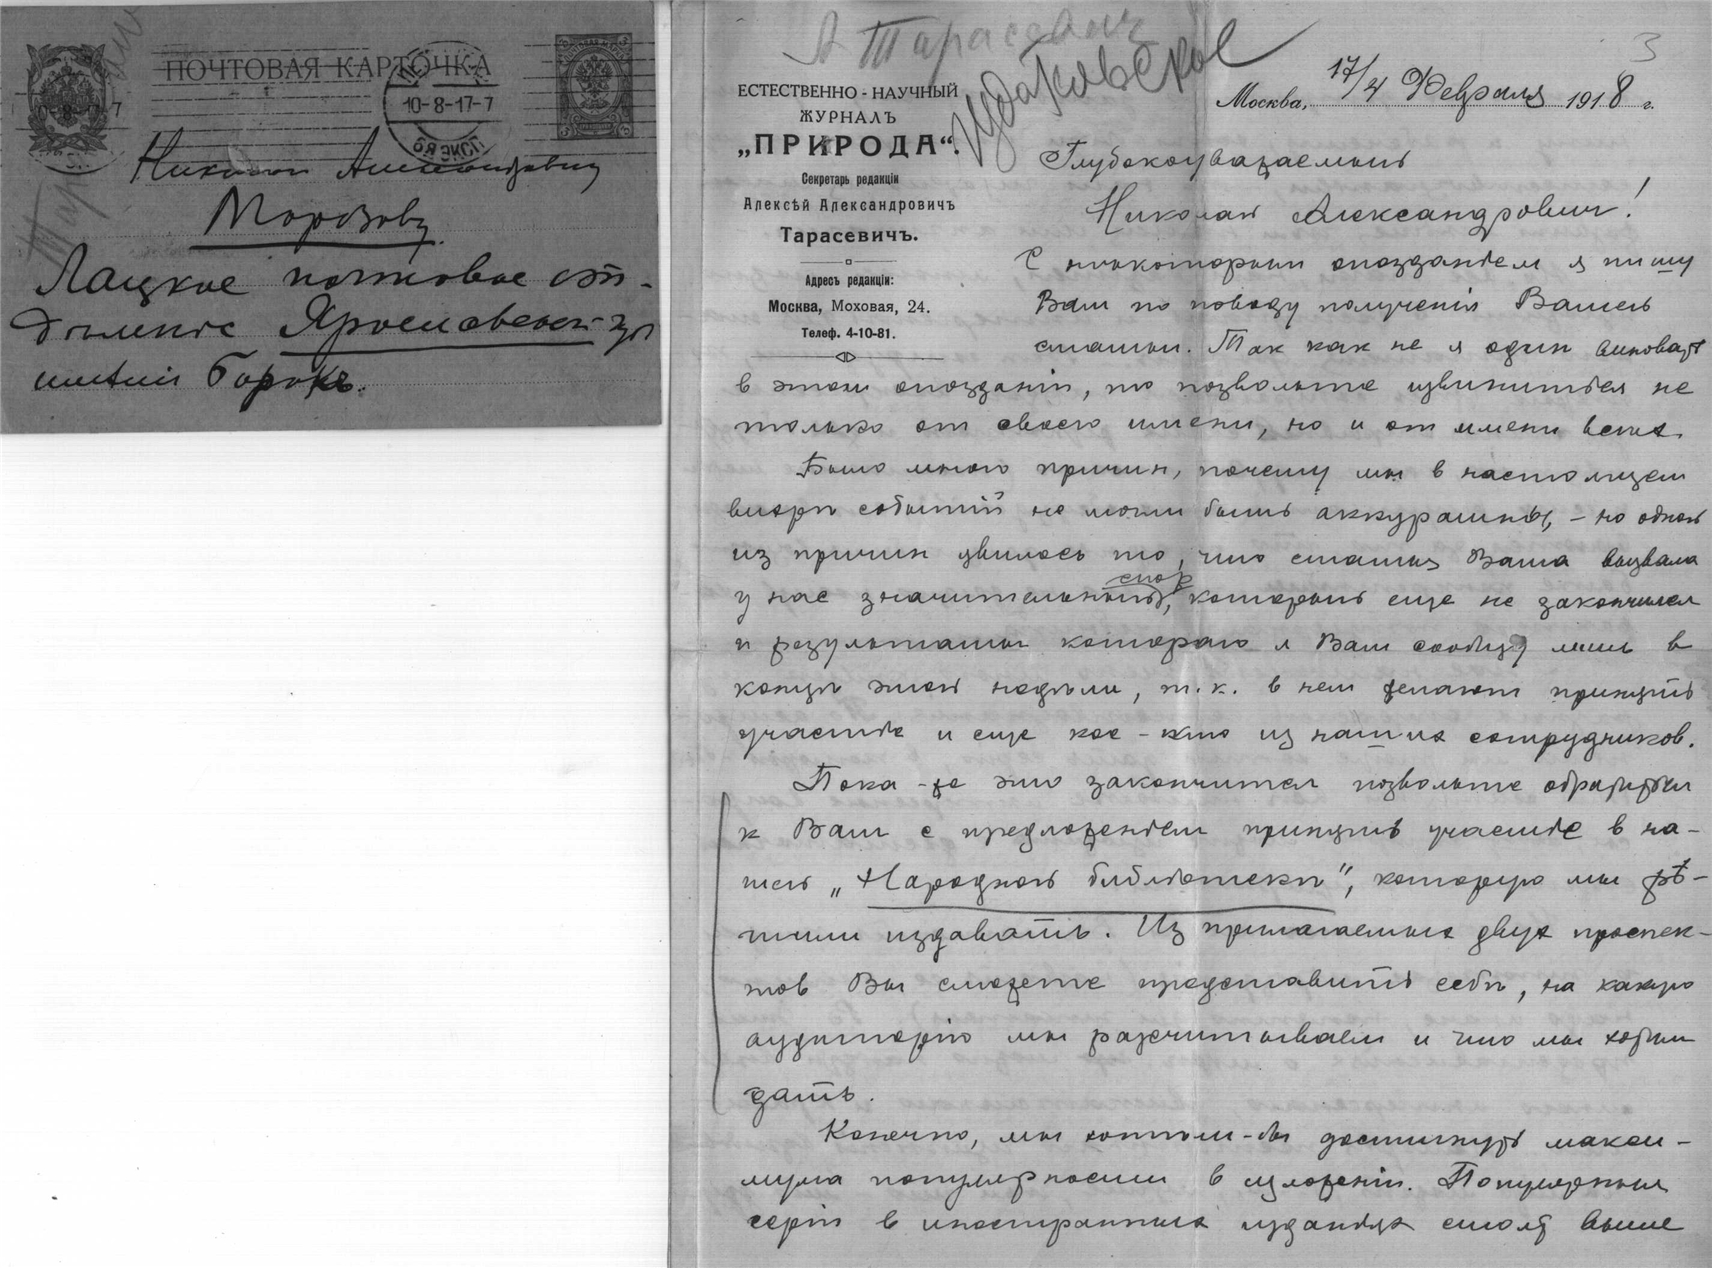 ПОЧТОВАЯ КАРТОЧКА
10-8-17-7
Николаю Александровичу
Морозову
Лацкое почтовое от-
дѣленiе Ярославской гу
имѣнiи Борокъ.
А Тарасевич
3
ЕСТЕСТВЕННО - НАУЧНЫЙ
ЖУРНАЛЪ
„ПРИРОДА“.
Секретарь редакціи
Алексѣй Александровичъ
Тарасевичъ.
Адресъ редакціи:
Москва, Моховая, 24.
Телеф. 4-10-81.
Москва, 17/4 Февраля 1918 г.
Глубокоуважаемый
Николай Александрович!
С нѣкоторым опозданіем я пишу
Вам по поводу полученія Вашей
статьи. Так как не я один виноват
в этом опозданіи, то позвольте извиниться не
только от своего имени, но и от имени всѣх.
Было много причин, почему мы в настоящем
вихрѣ событій не могли быть аккуратны, – но одной
из причин явилось то, что статья Ваша вызвала
у нас значительный спор, который еще не закончился
и результаты котораго я Вам сообщу лишь в
концѣ этой недѣли, т. к. в нем желают принять
участіе и еще кое-кто из наших сотрудников.
Пока-же это закончится позвольте обратиться
к Вам с предложеніем принять участіе в на-
шей „Народной библіотекѣ“, которую мы рѣ-
шили издавать. Из прилагаемых двух проспек-
тов Вы сможете представить себѣ, на какую
аудиторію мы разсчитываем и что мы хотим
дать.
Конечно, мы хотѣли-бы достигнуть макси-
мума популярности в изложеніи. Популярныя
серіи в иностранных изданіях стоят выше